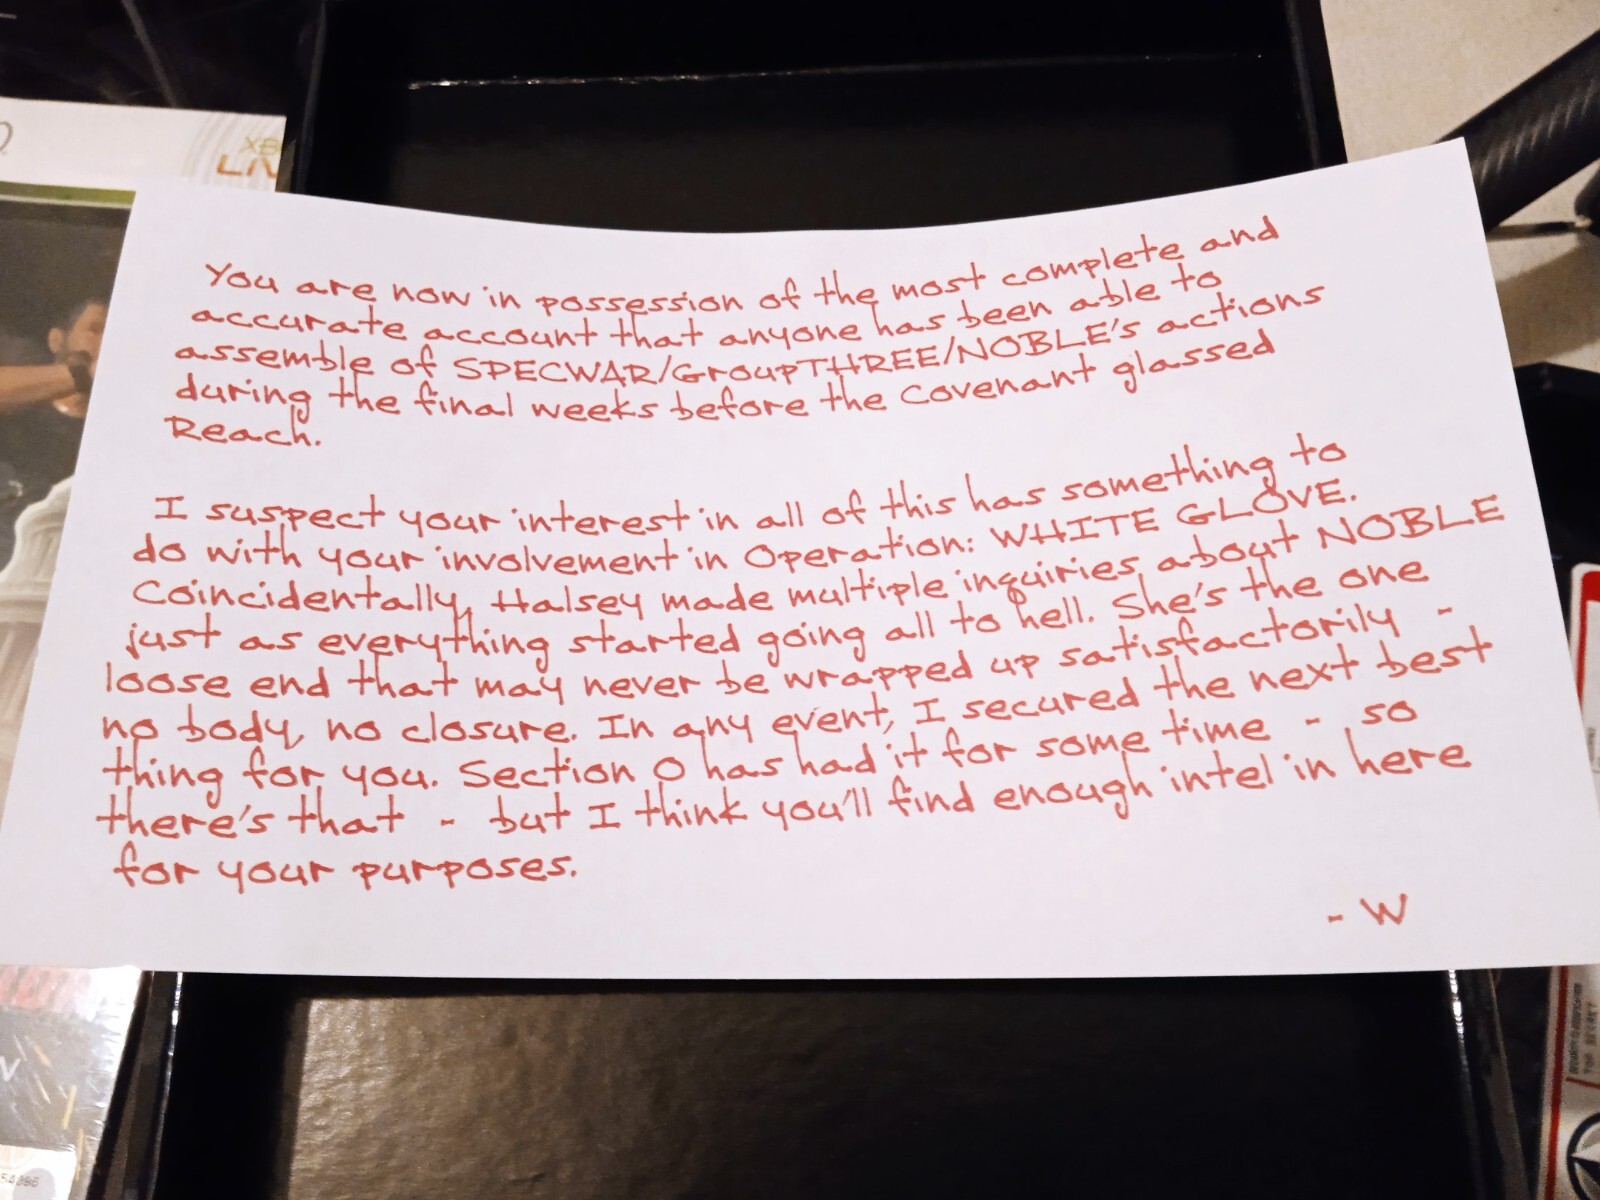 XB
LIV
You are now in possession of the most complete and
accurate account that anyone has been able to
assemble of SPECWAR/GroupTHREE/NOBLE's actions
during the final weeks before the Covenant glassed
Reach.
I suspect your interest in all of this has something to
do with your involvement in Operation: WHITE GLOVE.
Coincidentally, Halsey made multiple inquiries about NOBLE
just as everything started going all to hell. She's the one
loose end that may never be wrapped up satisfactorily -
no body, no closure. In any event, I secured the next best
thing for you. Section 0 has had it for some time - so
there's that - but I think you'll find enough intel in here
for your purposes.
- W
TOP SECRET